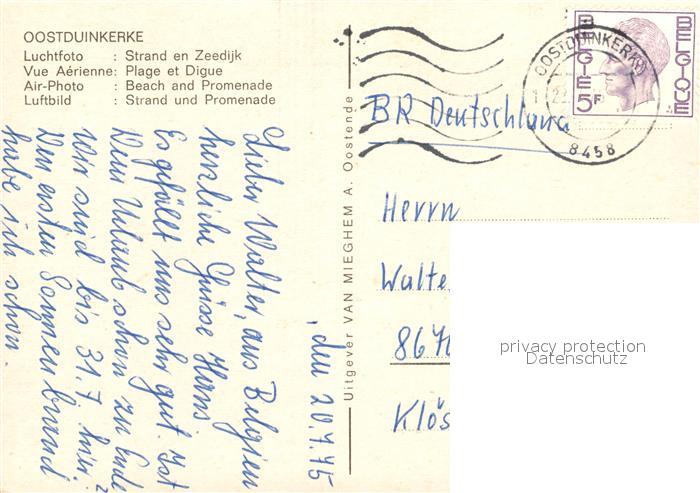 OOSTDUINKERKE
Luchtfoto : Strand en Zeedijk
Vue Aérienne: Plage et Digue
Air-Photo : Beach and Promenade
Luftbild : Strand und Promenade
, den 20.7.75
Lieber Walter, aus Belgien
herzliche Grüsse Hans
Es gefällt uns sehr gut. Ist
Dein Urlaub schon zu Ende?
Wir sind bis 31.7. hier.
Den ersten Sonnenbrand
habe ich schon.
Uitgever VAN MIEGHEM A. Oostende
BELGIE 5F BELGIQUE
OOSTDUINKERKE
8458
BR Deutschland
Herrn
Walte
867
Klös
privacy protection
Datenschutz